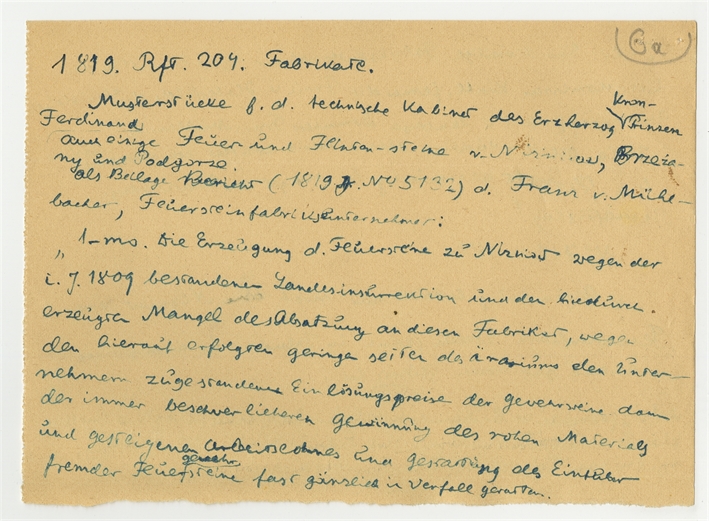 6a
1819. Rft. 204. Fabrikate.
Musterstücke f. d. technische Kabinet des Erzherzog Kron-
Prinzen
Ferdinand
auch einige Feuer und Flinten-steine v. Nizniow, Brzeża-
ny und Podgorze.
als Beilage (1819 No 5132) d. Franz v. Mühl-
bacher, Feuersteinfabriksunternehmer:
" 1-mo. Die Erzeugung d. Feuersteine zu Nizniow wegen der
i. J. 1809 bestandenen Landesinsurrektion und den hiedurch
erzeugten Mangel des Absatzung an diesen Fabrikat, wegen
den hierauf erfolgten geringe seiten des Ärariums den Unter-
nehmern zugestandenen Einlösungspreise der gewehrsteine dann
der immer beschwerlicheren Gewinnung des rohen Materials
und gestiegenen Arbeitslohnes und gestattung des Einfuhr
fremder Feuer gewehr steine fast gänzlich in Verfall geraten.